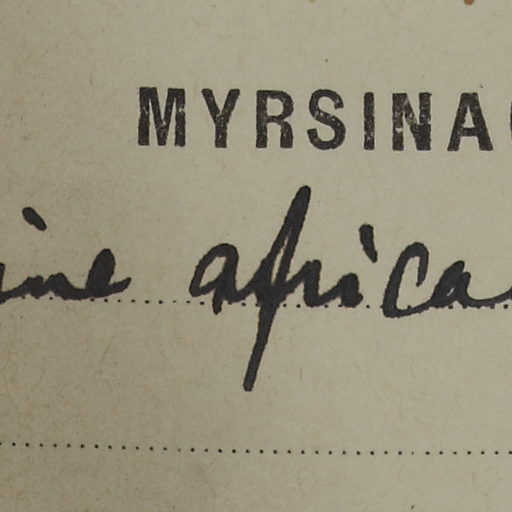 MYRSINA
ine africa